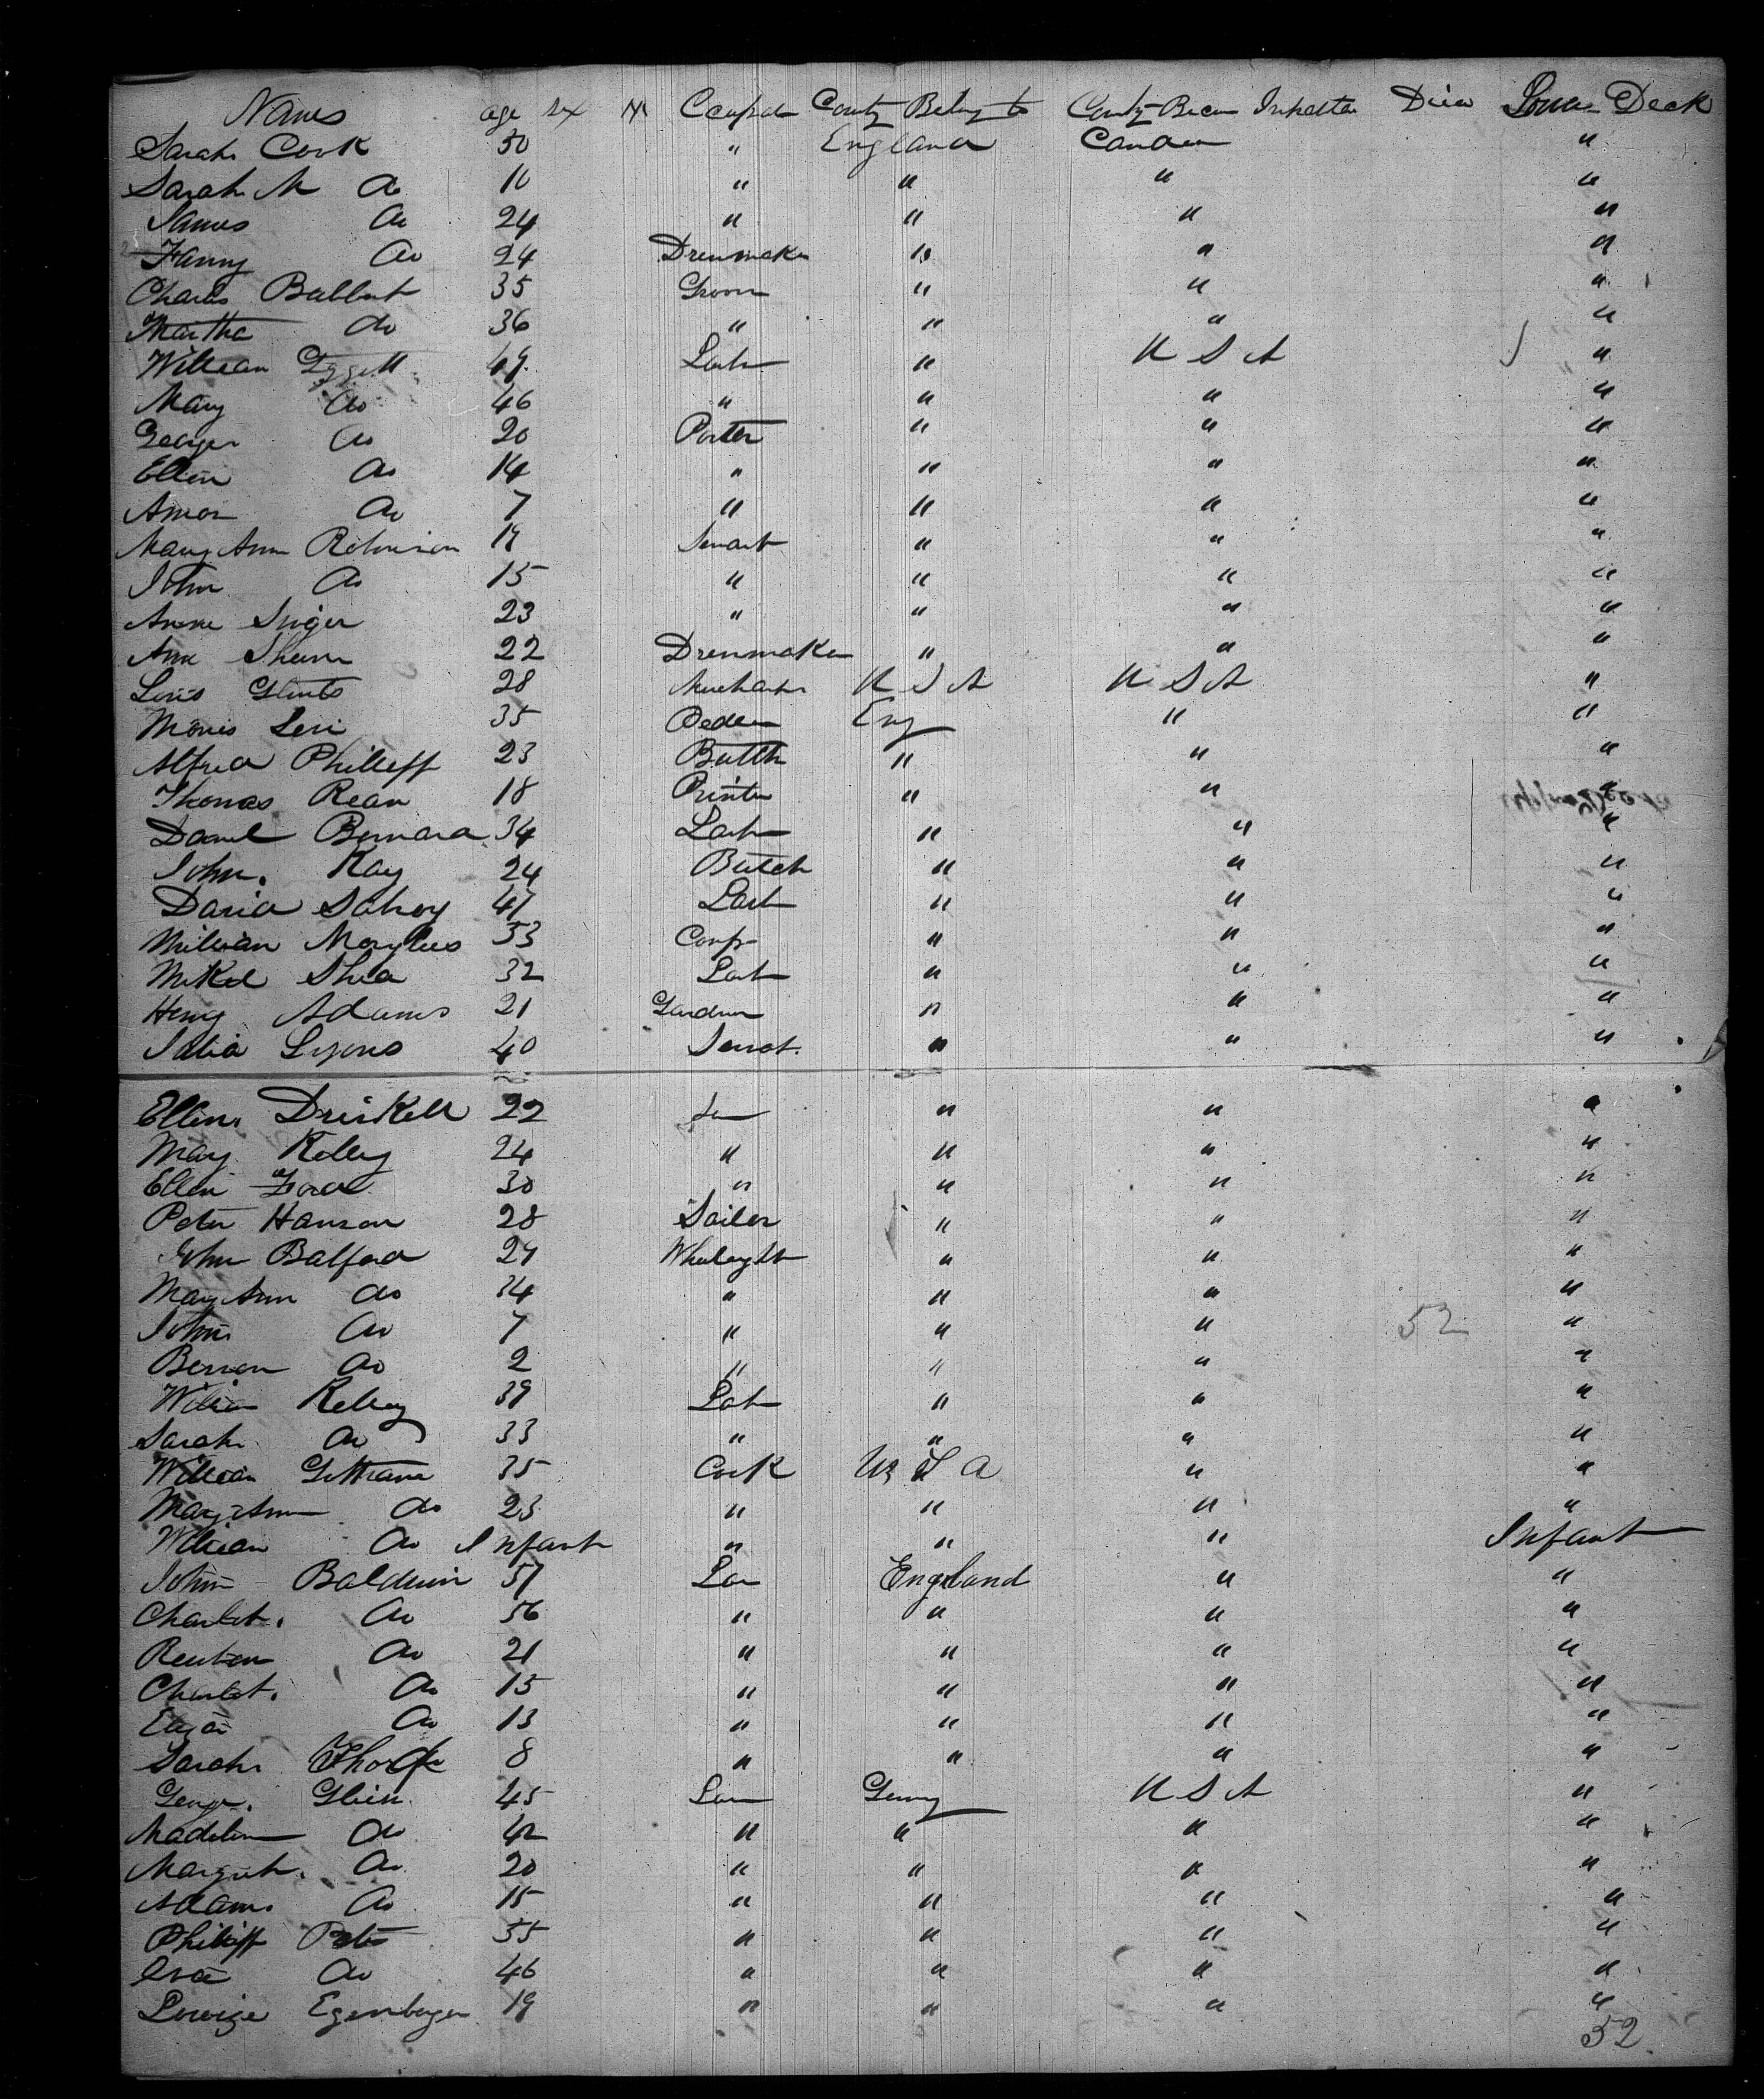 Names age sex Occupat County Belong to County Become Inhabita Died Lower Deck
Sarah Cook 50 " England Canada "
Sarah M do 10 " " " "
James do 24 " " " "
Fanny do 24 Dressmaker " " "
Charles Bulbut 35 Groom " " "
Martha do 36 " " " "
William 49 Lab " U S A "
Mary do 46 " " " "
George do 20 Porter " " "
Ellen do 14 " " " "
Amon do 7 " " " "
Mary Ann Robinson 19 Servant " " "
John do 15 " " " "
Annie Singer 23 " " " "
Ann 22 Dressmaker " " "
Louis 28 U S A U S A "
Morris Levi 35 Pedler Eng " "
Alfred Phillipp 23 Butch " " "
Thomas Rean 18 Printer " " "
Daniel Bernard 34 Lab " " "
John. Kay 24 Butch " " "
David 47 Lab " " "
William 53 Carp " " "
Mikel Shea 32 Lab " " "
Henry Adams 21 Gardner " " "
Julia Lyons 40 Servt. " " "
Ellen Driskell 22 Ser " " "
Mary Kelley 24 " " " "
Ellen Ford 30 " " " "
Peter Hanson 28 Sailer " " "
John Balford 29 " " "
Mary Ann do 34 " " " "
John do 7 " " " 52 "
do 2 " " " "
William Kelley 39 Lab " " "
Sarah do 33 " " " "
William 35 Cook U S A " "
Mary Ann do 23 " " " "
William do Infant " " " Infant
John Baldwin 57 Lab England " "
Charlet. do 56 " " " "
Reuben do 21 " " " "
Charlet. do 15 " " " "
Eliza do 13 " " " "
Sarah Thorpe 8 " " " "
George. 45 Lab Germy U S A "
Madelin do 42 " " " "
Margret. do 20 " " " "
Adam. do 15 " " " "
Philipp Peter 55 " " " "
Eva do 46 " " " "
Lowize Egenberger 19 " " " "
52